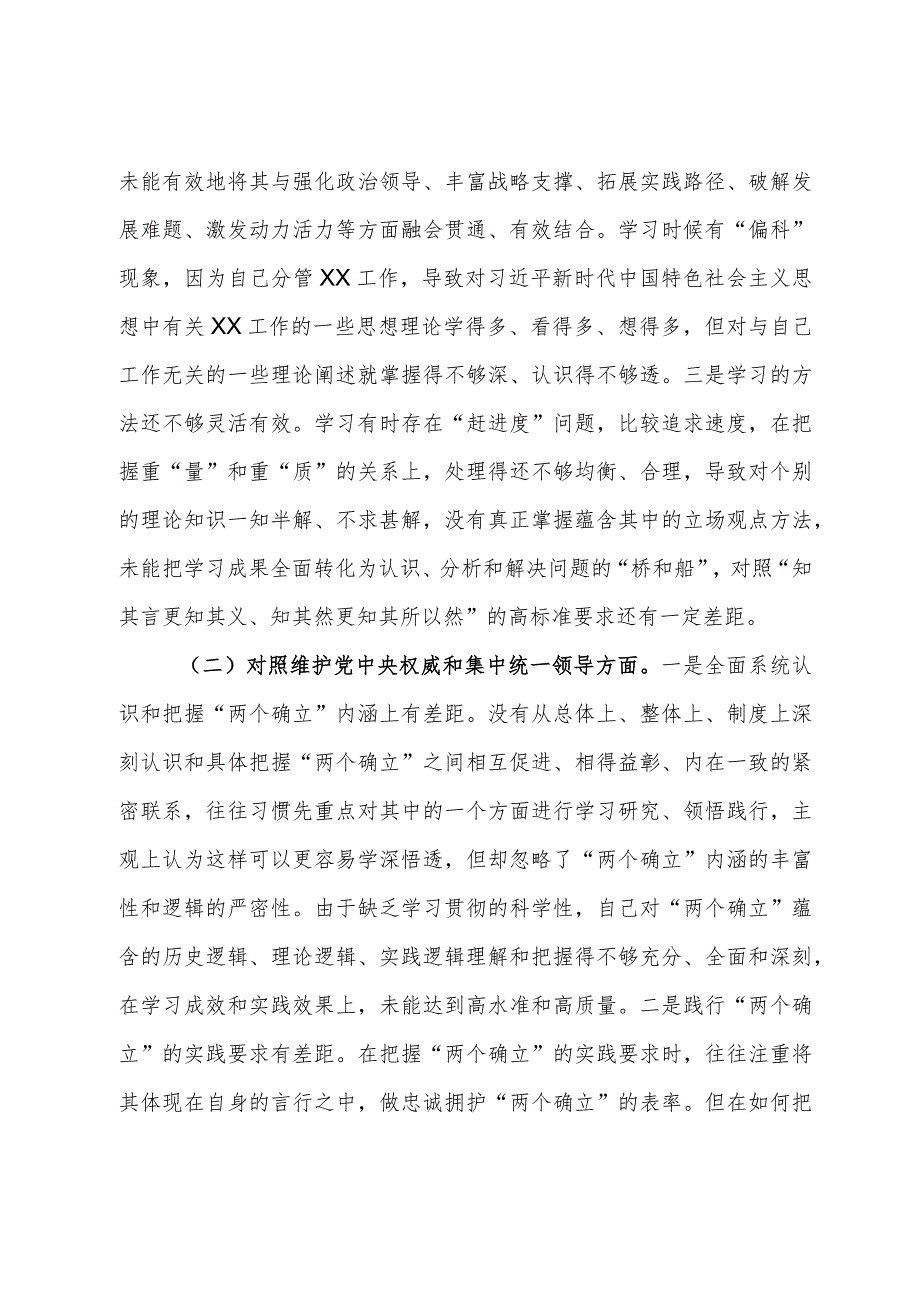 未能有效地将其与强化政治领导、丰富战略支撑、拓展实践路径、破解发
展难题、激发动力活力等方面融会贯通、有效结合。学习时候有“偏科”
现象，因为自己分管 XX 工作，导致对习近平新时代中国特色社会主义思
想中有关 XX 工作的一些思想理论学得多、看得多、想得多，但对与自己
工作无关的一些理论阐述就掌握得不够深、认识得不够透。三是学习的方
法还不够灵活有效。学习有时存在“赶进度”问题，比较追求速度，在把
握重“量”和重“质”的关系上，处理得还不够均衡、合理，导致对个别
的理论知识一知半解、不求甚解，没有真正掌握蕴含其中的立场观点方法，
未能把学习成果全面转化为认识、分析和解决问题的“桥和船”，对照“知
其言更知其义、知其然更知其所以然”的高标准要求还有一定差距。
（二）对照维护党中央权威和集中统一领导方面。一是全面系统认
识和把握“两个确立”内涵上有差距。没有从总体上、整体上、制度上深
刻认识和具体把握“两个确立”之间相互促进、相得益彰、内在一致的紧
密联系，往往习惯先重点对其中的一个方面进行学习研究、领悟践行，主
观上认为这样可以更容易学深悟透，但却忽略了“两个确立”内涵的丰富
性和逻辑的严密性。由于缺乏学习贯彻的科学性，自己对“两个确立”蕴
含的历史逻辑、理论逻辑、实践逻辑理解和把握得不够充分、全面和深刻，
在学习成效和实践效果上，未能达到高水准和高质量。二是践行“两个确
立”的实践要求有差距。在把握“两个确立”的实践要求时，往往注重将
其体现在自身的言行之中，做忠诚拥护“两个确立”的表率。但在如何把